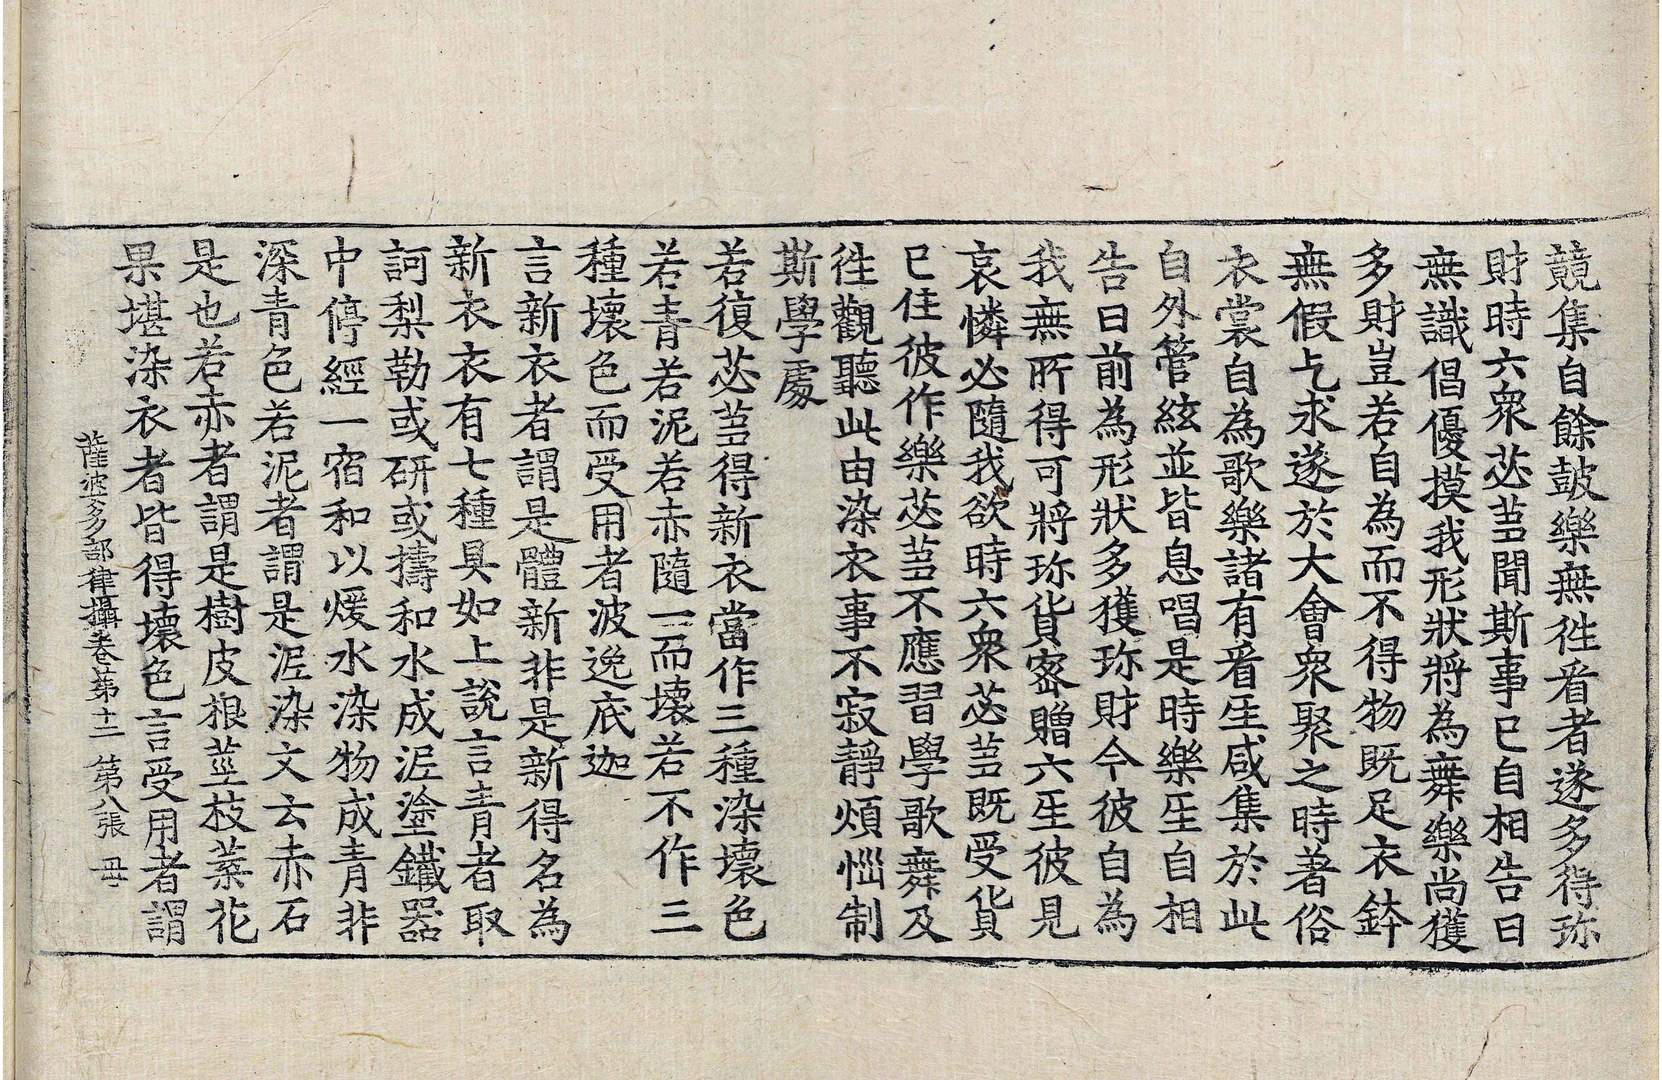 競集自餘鼓樂無徃看者遂多得珎
財時六衆苾芻聞斯事已自相告曰
無識倡優摸我形狀將為舞樂尚獲
多財豈若自為而不得物旣足衣鉢
無假乞求遂於大會衆聚之時著俗
衣裳自為歌樂諸有看生咸集於此
自外管絃並皆息唱是時樂生自相
告曰前為形狀多獲珎財今彼自為
我無所得可將珎貨密贈六生彼見
哀憐必隨我欲時六衆苾芻旣受貨
已住彼作樂苾芻不應習學歌舞及
徃觀聽此由染衣事不寂靜煩惱制
斯學處
若復苾芻得新衣當作三種染壞色
若青若泥若赤隨一而壞若不作三
種壞色而受用者波逸底迦
言新衣者謂是體新非是新得名為
新衣衣有七種具如上說言青者取
訶梨勒或研或擣和水成泥塗鐵器
中停經一宿和以煖水染物成青非
深青色若泥者謂是泥染文云赤石
是也若赤者謂是樹皮根莖枝葉花
果堪染衣者皆得壞色言受用者謂
薩波多部律攝卷第十二 第八張 毋